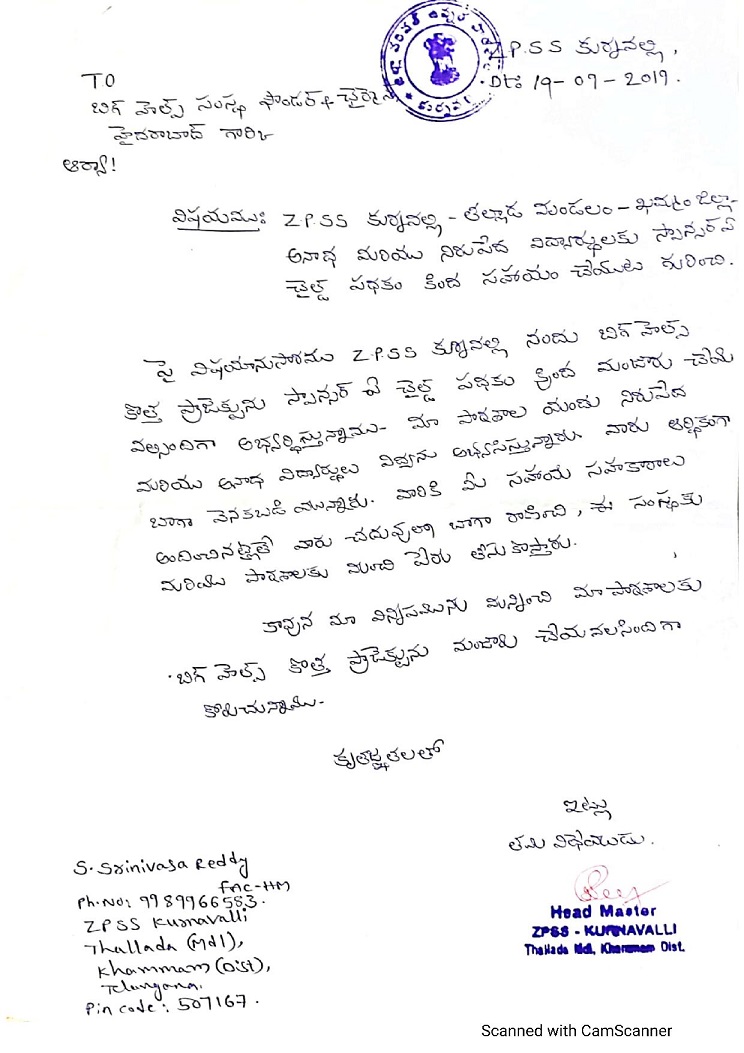 Z.P.S.S కుర్నవల్లి,
Dt: 19-07-2019.
TO
బిగ్ హెల్ప్ సంస్థ ఫౌండర్ & ఛైర్మెన్
హైదరాబాద్ గారికి
ఆర్యా!
విషయము: Z.P.S.S కుర్నవల్లి - తల్లాడ మండలం - ఖమ్మం జిల్లా-
అనాధ మరియు నిరుపేద విద్యార్థులకు స్పాన్సర్ ఏ
చైల్డ్ పథకం కింద సహాయం చేయుట గురించి.
పై విషయానుసారము Z.P.S.S కుర్నవల్లి నందు బిగ్ హెల్ప్
కొత్త ప్రాజెక్టును స్పాన్సర్ ఏ చైల్డ్ పథకం క్రింద మంజూరు చేయ
వల్సిందిగా అభ్యర్థిస్తున్నాము- మా పాఠశాల యందు నిరుపేద
మరియు అనాధ విద్యార్థులు విద్యను అభ్యసిస్తున్నారు. వారు ఆర్థికంగా
బాగా వెనకబడి యున్నారు. వారికి మీ సహాయ సహకారాలు
అందించినట్లైతే వారు చదువులో బాగా రాణించి, ఈ సంస్థకు
మరియు పాఠశాలకు మంచి పేరు తీసుకొస్తారు.
కావున మా విన్నపమును మన్నించి మా పాఠశాలకు
బిగ్ హెల్ప్ కొత్త ప్రాజెక్టును మంజూరు చేయవలసిందిగా
కోరుచున్నాము-
కృతజ్ఞతలతో
ఇట్లు
తమ విధేయుడు.
S. Srinivasa Reddy
FAC-HM
Ph.No: 9989966583.
ZPSS Kurnavalli
Thallada (Mdl),
Khammam (Dist),
Telangana.
Pin code: 507167.
Head Master
ZPSS - KURNAVALLI
Thallada Mdl, Khammam Dist.
Scanned with CamScanner